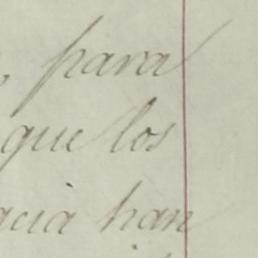 , para
que los
acia han